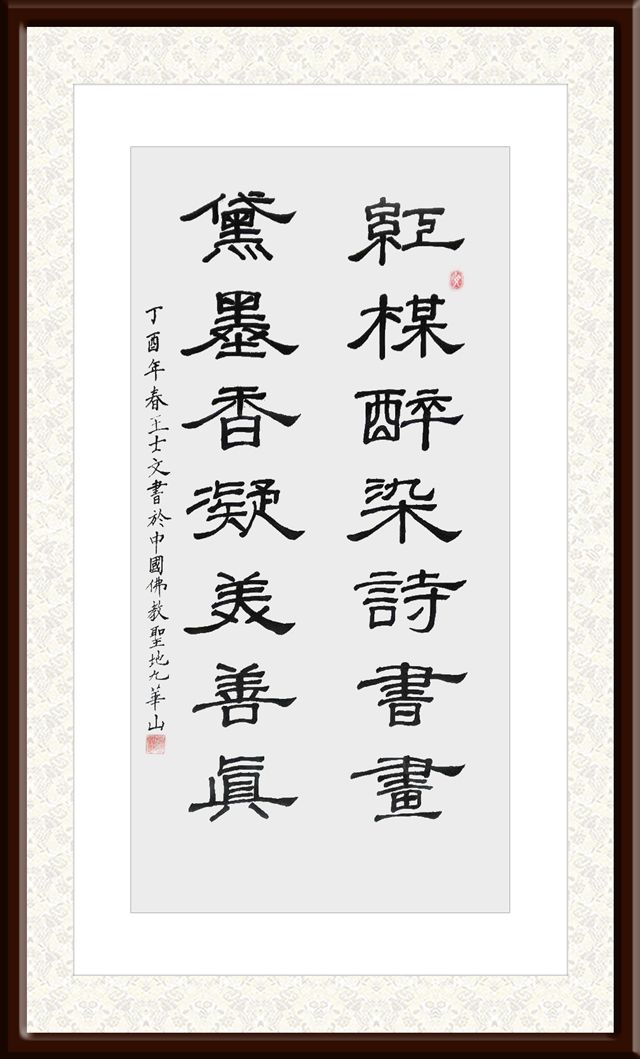 紅楳醉染詩書畫
黛墨香凝美善眞
丁酉年春王士文書於中國佛教聖地九華山